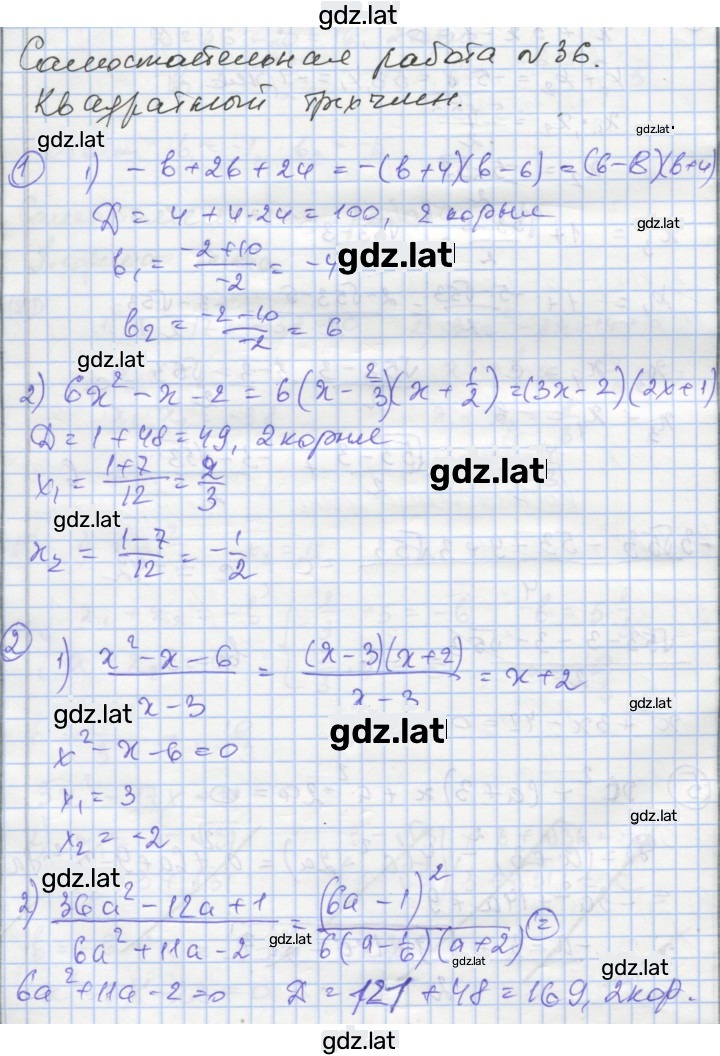 gdz.lat
Самостоятельная работа №36.
Квадратный трёхчлен.
gdz.lat
gdz.lat
① 1) - b + 2b + 24 = -(b+4)(b-6) = (6-b)(b+4)
D = 4 + 4·24 = 100, 2 корня
gdz.lat
b₁ = (-2+10)/(-2) = -4
gdz.lat
b₂ = (-2-10)/(-2) = 6
gdz.lat
2) 6x² - x - 2 = 6(x - 2/3)(x + 1/2) = (3x-2)(2x+1)
D = 1 + 48 = 49, 2 корня
x₁ = (1+7)/12 = 2/3
gdz.lat
gdz.lat
x₂ = (1-7)/12 = -1/2
② 1) (x² - x - 6)/(x - 3) = ((x-3)(x+2))/(x-3) = x+2
gdz.lat
gdz.lat
gdz.lat
x² - x - 6 = 0
x₁ = 3
gdz.lat
x₂ = -2
gdz.lat
2) (36a² - 12a + 1)/(6a² + 11a - 2) = (6a - 1)²/(6(a - 1/6)(a+2)) ⊜
gdz.lat
gdz.lat
gdz.lat
6a² + 11a - 2 = 0 D = 121 + 48 = 169, 2 кор.
gdz.lat